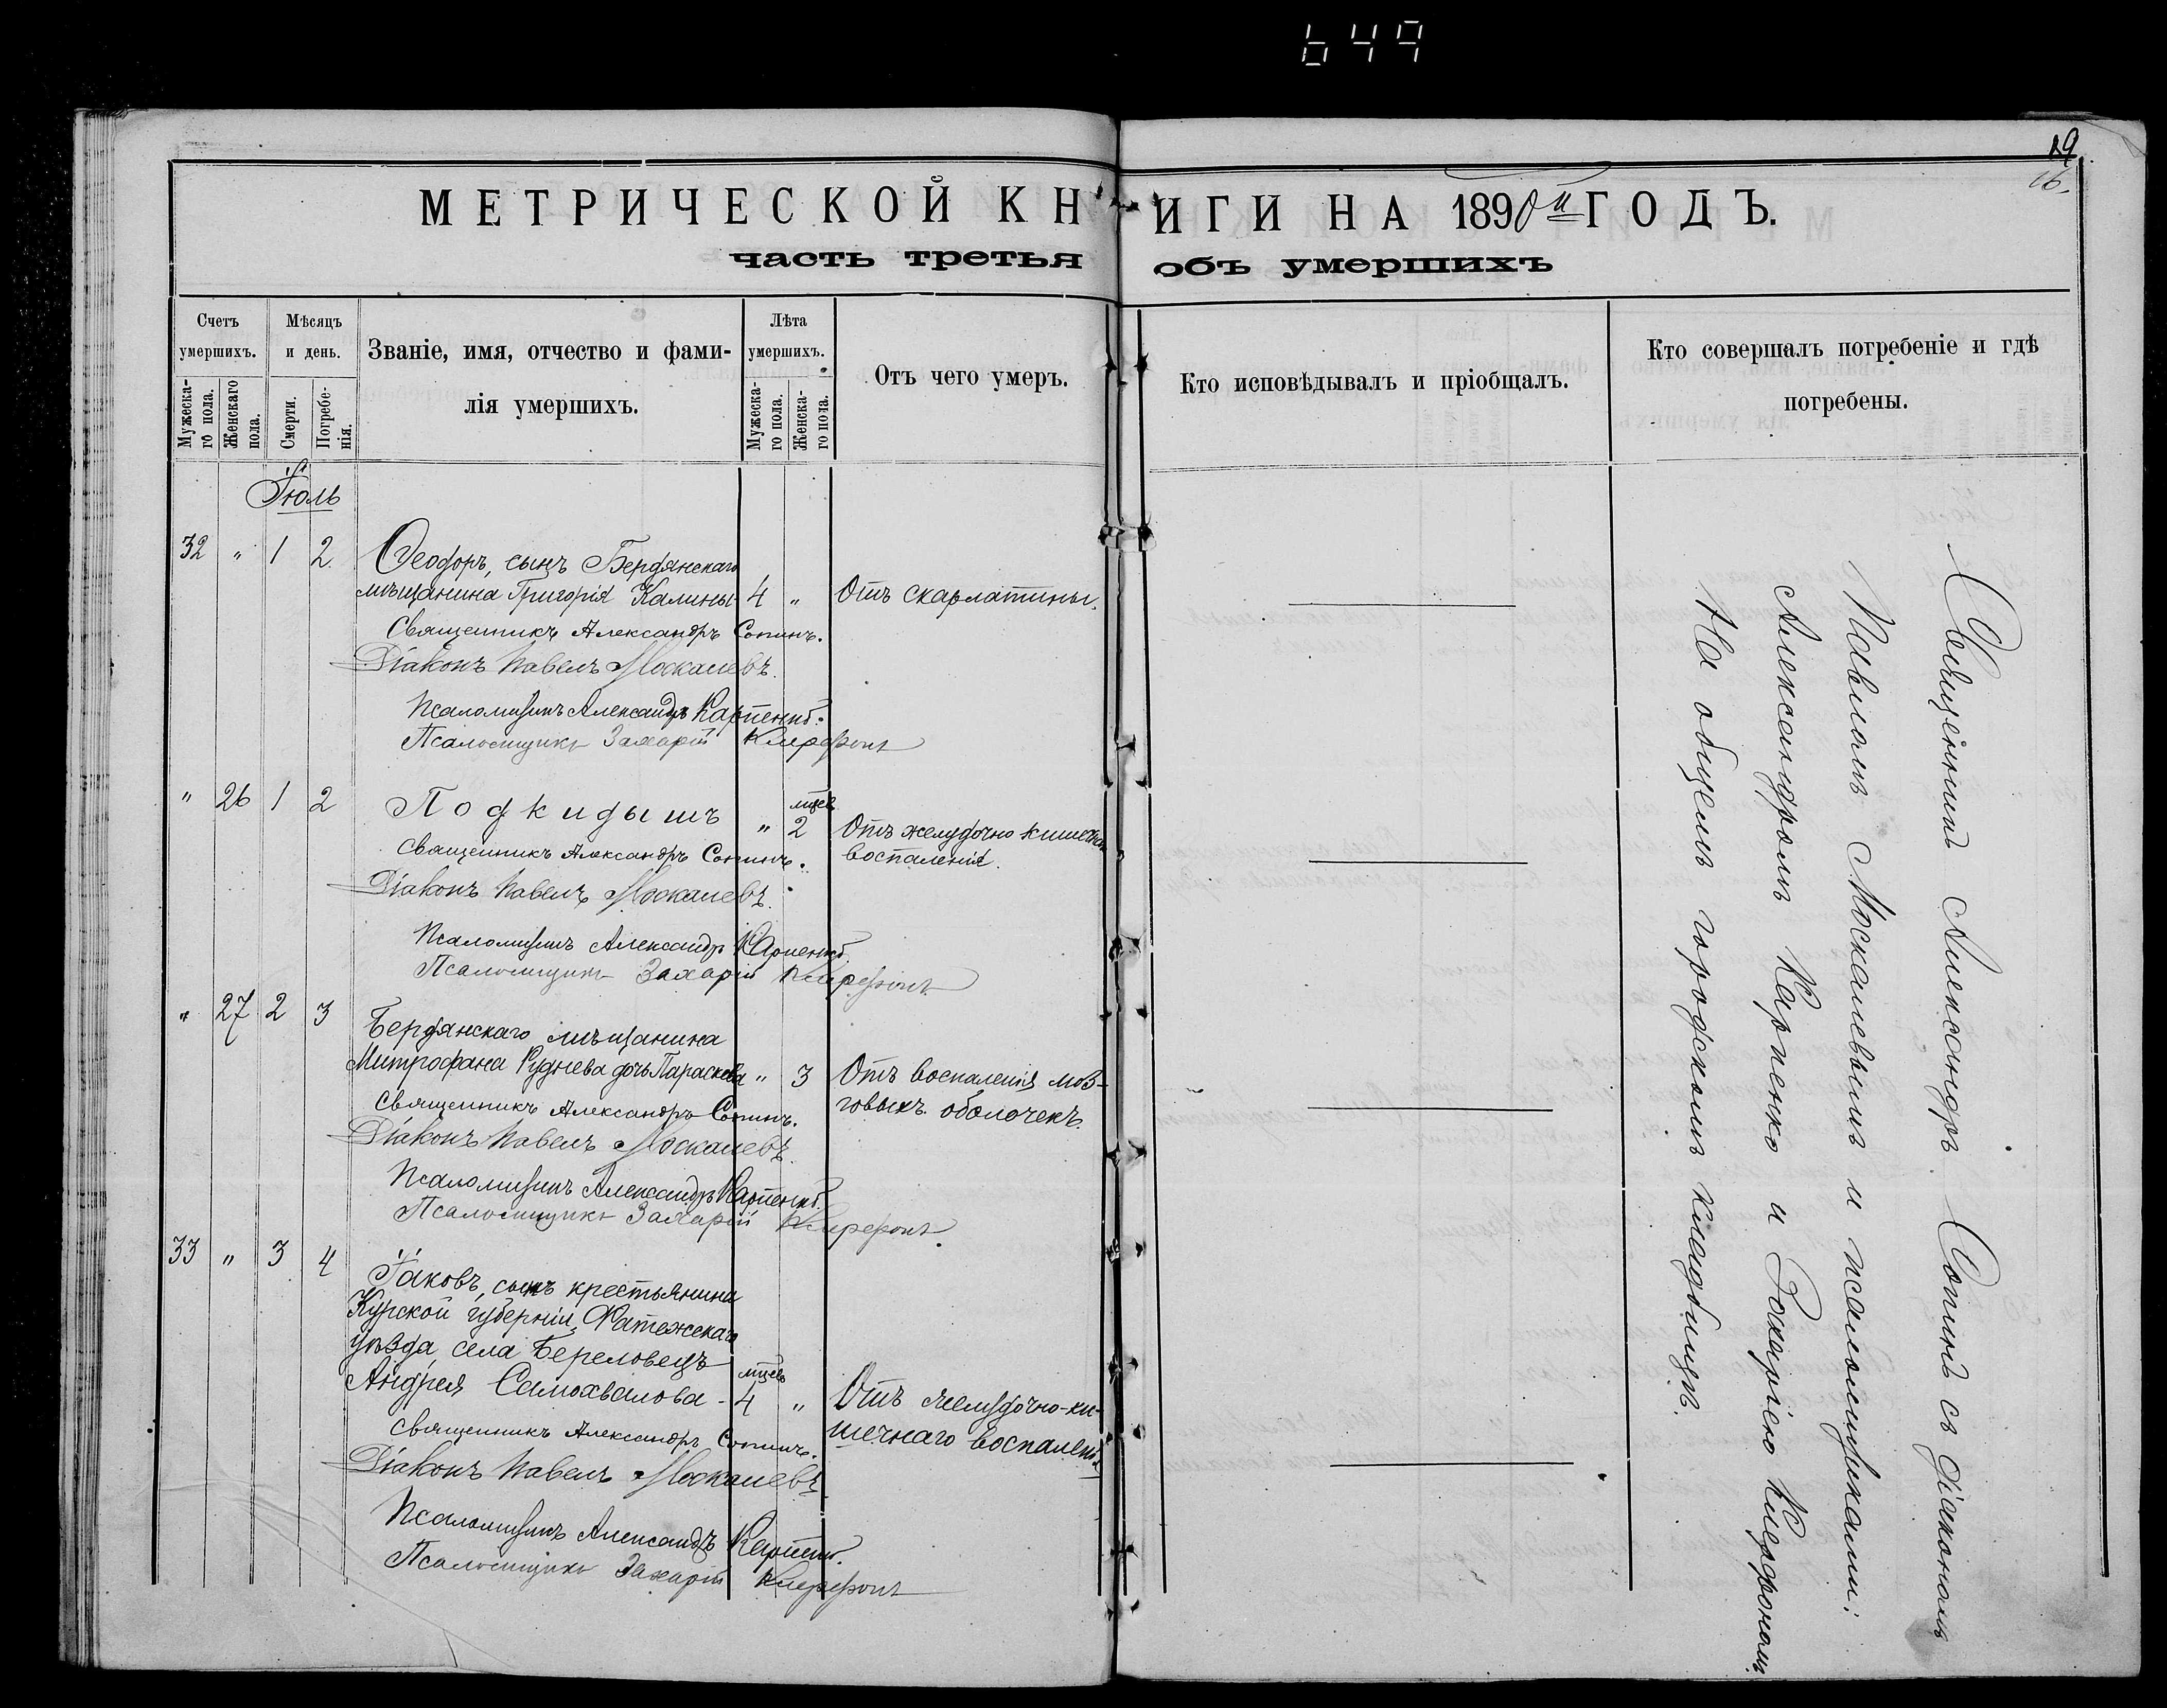 649
19
16.
МЕТРИЧЕСКОЙ КНИГИ НА 1890й ГОДЪ.
часть третья объ умершихъ
Счетъ умершихъ.
Мужеска-го пола.
Женскаго пола.
Мѣсяцъ и день.
Смерти.
Погребе-нія.
Званіе, имя, отчество и фами-
лія умершихъ.
Лѣта умершихъ.
Мужеска-го пола.
Женска-го пола.
Отъ чего умеръ.
Кто исповѣдывалъ и пріобщалъ.
Кто совершалъ погребеніе и гдѣ
погребены.
Іюль
32 " 1 2 Ѳеодоръ, сынъ Бердянскаго
мѣщанина Григорія Калины 4 " Отъ скарлатины.
Священникъ Александръ Сопинъ.
Діаконъ Павелъ Москалевъ.
Псаломщикъ Александръ Карпенко.
Псаломщикъ Захарій Клерфонъ
" 26 1 2 Подкидышъ " мцев 2 Отъ желудочно кишечн
воспаленія.
Священникъ Александръ Сопинъ.
Діаконъ Павелъ Москалевъ.
Псаломщикъ Александръ Карпенко.
Псаломщикъ Захарій Клерфонъ
" 27 2 3 Бердянскаго мѣщанина
Митрофана Руднева дочь Параскева " 3 Отъ воспаленія моз-
говыхъ оболочекъ.
Священникъ Александръ Сопинъ.
Діаконъ Павелъ Москалевъ.
Псаломщикъ Александръ Карпенко.
Псаломщикъ Захарій Клерфонъ.
33 " 3 4 Іаковъ, сынъ крестьянина
Курской губерніи, Фатежскаго
уѣзда, села Береловецъ
Андрея Самохвалова - мцевъ 4 " Отъ желудочно-ки-
шечнаго воспаленія
Священникъ Александръ Сопинъ.
Діаконъ Павелъ Москалевъ
Псаломщикъ Александръ Карпенко.
Псаломщикъ Захарій Клерфонъ
Священникъ Александръ Сопинъ съ діакономъ
Павломъ Москалевымъ и псаломщиками:
Александромъ Карпенко и Захаріею Клерфономъ
На общемъ городскомъ кладбищѣ.